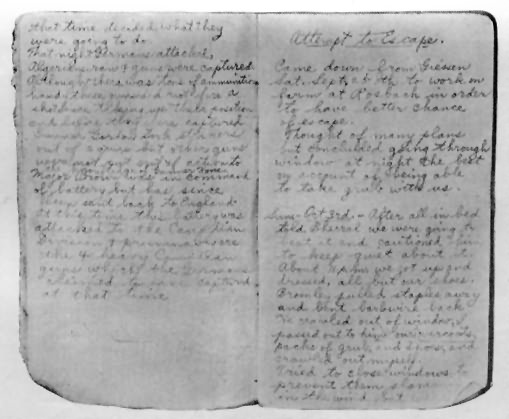 that time decided what they
were going to do.
That night Germans attacked,
Algerians ran & guns were captured.
Although there was tons of ammunition
hand it over, gunners not fire a
shot
and before they were captured
Gunner Gordon
out of a guns but other guns
were not put out of action
Major Brown was in command
of battery but has since
been sent back to England.
At this time this battery was
attached to the Canadian
Division &
the 4 heavy Canadian
guns which the Germans
claimed to have captured
at that time
Attempt to Escape.
Came down from Giessen
Sat. Sept. 25th to work on
farm at Rosbach in order
to have better chance
of escape.
Thought of many plans
but concluded going through
window at night the best
on account of being able
to take grub with us.
Sun. Oct 3rd. - After all in bed
told we were going to
beat it and cautioned him
to keep quiet about it.
About 11 p.m. we got up and
dressed, all but our shoes.
Bromley pulled staples away
and bent barbwire back
He crawled out of window, I
passed out to him our
packs of grub, and shoes, and
crawled out myself.
Tried to close windows to
prevent them slam
in the wind but